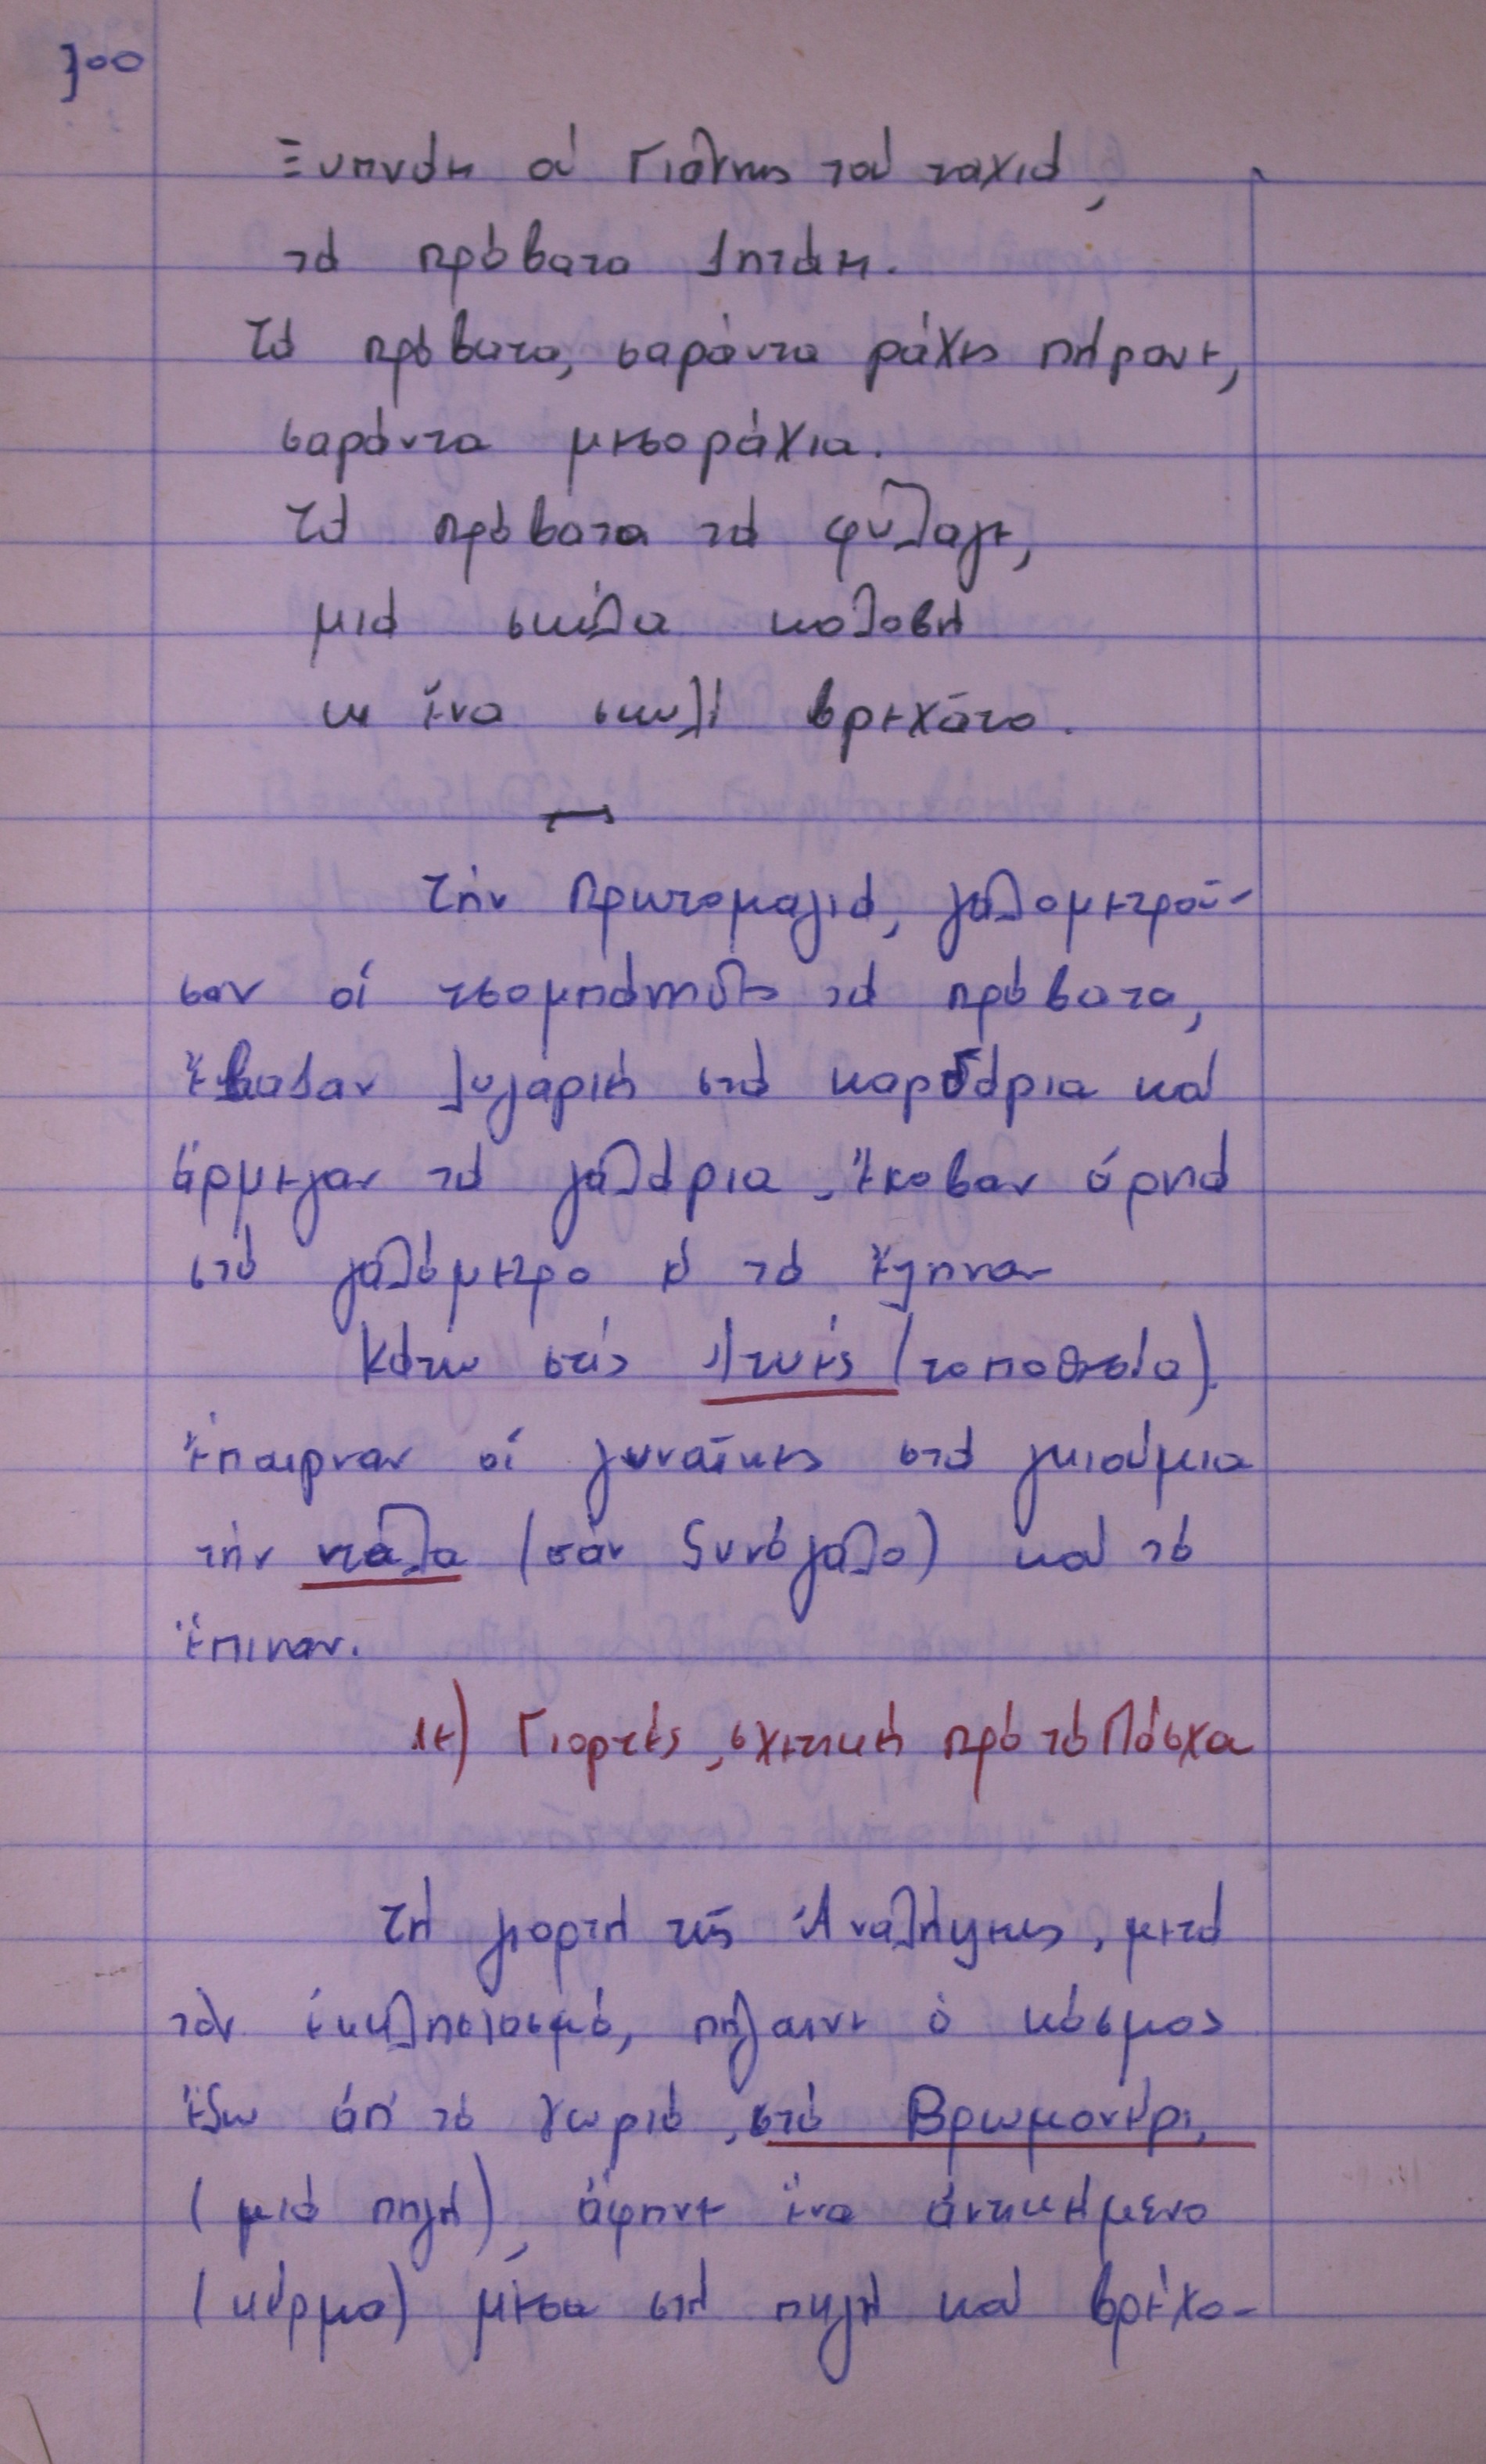 300
Ξυπνάει ού Γιάννης τού ταχιά,
τά πρόβατα ζητάει.
Τά πρόβατα, σαράντα ράχες πήρανε,
σαράντα μεσοράχια.
Τά πρόβατα τά φύλαγε,
μιά σκύλα κολοβή
κι ένα σκυλί βρεχάτο.
Τήν Πρωτομαγιά, γαλομετρού-
σαν οί τσομπάνηδες τά πρόβατα,
έβαζαν λυγαριή στά καρδάρια καί
άρμεγαν τά γαλάρια, έκοβαν άρνιά
στό γαλόμετρο κ' τά έψηναν
Κάτω στίς (τοποθεσία).
έπαιρναν οί γυναίκες στά γκιούμια
τήν ντάλα (σάν ξυνόγαλο) καί τό
έπιναν.
ιε) Γιορτές, σχετική πρό τό Πάσχα
Τή γιορτή τής Άναλήψεως, μετά
τόν έκκλησιασμό, πήγαινε ό κόσμος
έξω άπ' τό χωριό, στό Βρωμονέρι,
(μιά πηγή), άφηνε ένα άντικείμενο
(κέρμα) μέσα στή πηγή καί βρέχο-